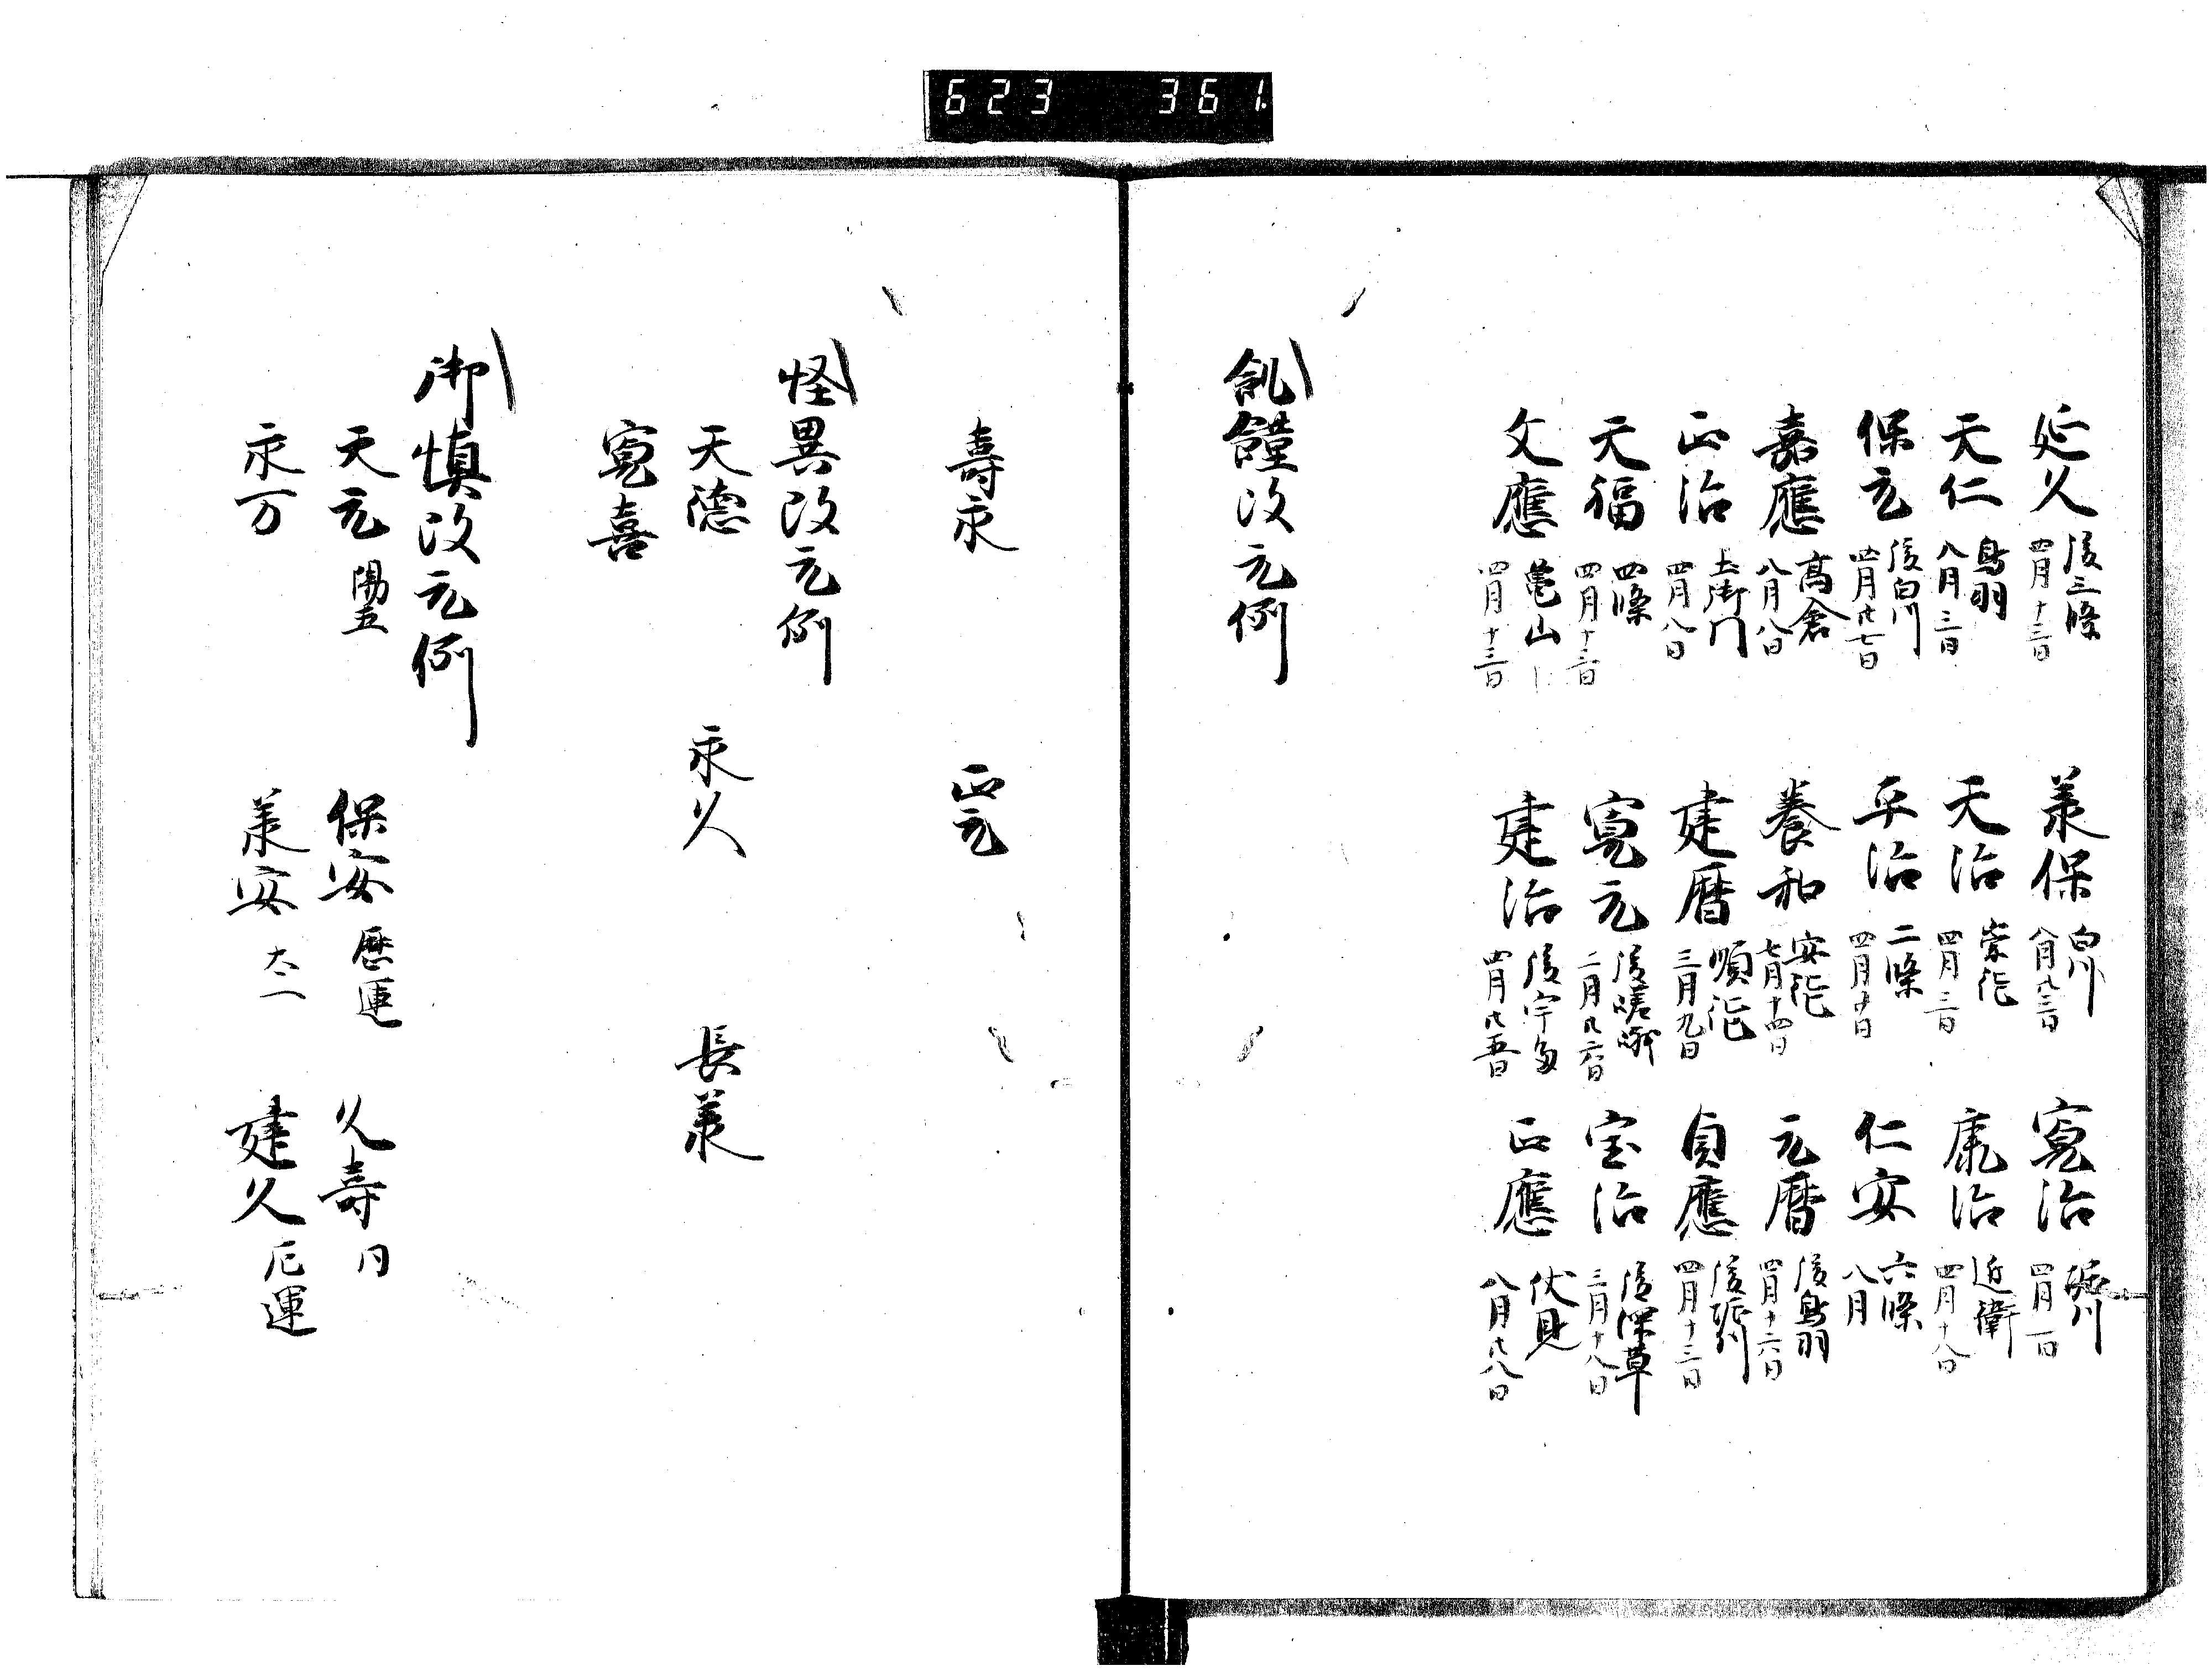 623 361
延久 後三條 四月十三日 承保 白川 八月廿三日 寛治 堀川 四月一日
天仁 鳥羽 八月三日 天治 崇徳 四月三日 康治 近衛 四月十八日
保元 後白川 四月廿七日 平治 二條 四月廿日 仁安 六條 八月
嘉應 高倉 八月八日 養和 安徳 七月十四日 元暦 後鳥羽 四月十六日
正治 土御門 四月八日 建暦 順徳 三月九日 貞應 後堀川 四月十三日
天福 四條 四月十三日 寛元 後嵯峨 二月廿六日 宝治 後深草 三月十八日
文應 亀山 四月十三日 建治 後宇多 四月廿五日 正應 伏見 八月廿八日
飢饉改元例
壽永 正元
怪異改元例
天徳 永久 長承
寛喜
御慎改元例
天元 陽五 保安 歴運 久壽 同
永万 承安 太一 建久 厄運